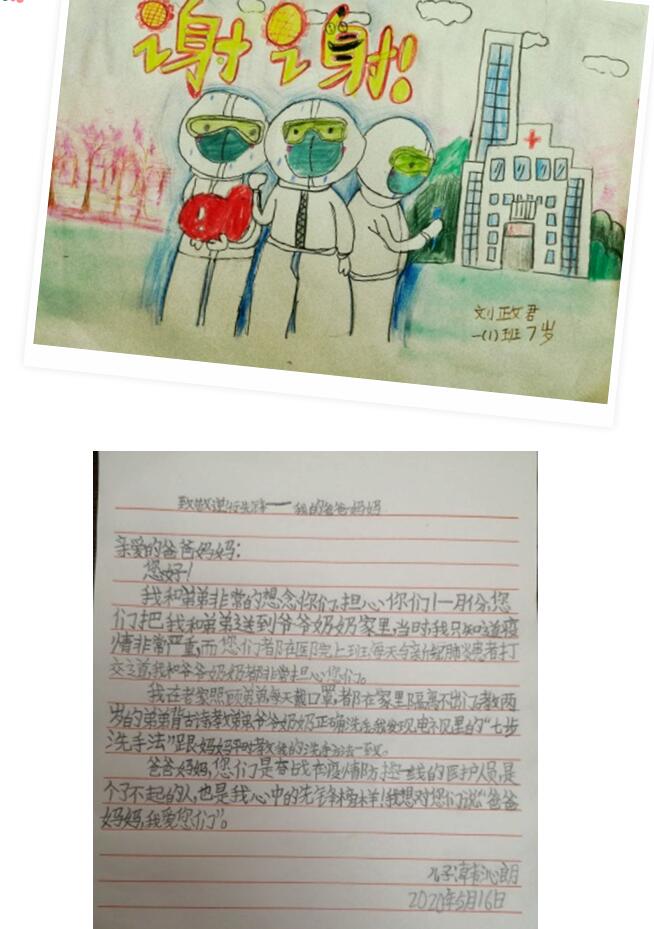 谢谢!
刘政君
一(1)班7岁
致敬逆行先锋——我的爸爸妈妈
亲爱的爸爸妈妈:
您好!
我和弟弟非常的想念你们,担心你们!一月份,您
们把我和弟弟送到爷爷奶奶家里,当时,我只知道疫
情非常严重,而您们都在医院上班,每天与新冠肺炎患者打
交道,我和爷爷奶奶都非常担心您们。
我在老家照顾弟弟,每天戴口罩,都在家里隔离不出门,教两
岁的弟弟背古诗,教弟弟爷爷奶奶正确洗手,我发现,电视里的“七步
洗手法”跟妈妈平时教我的洗手方法一致。
爸爸妈妈,您们是奋战在疫情防控一线的医护人员,是
个了不起的人,也是我心中的先锋榜样!我想对您们说“爸爸
妈妈,我爱您们”。
儿子:沁朗
2020年5月16日